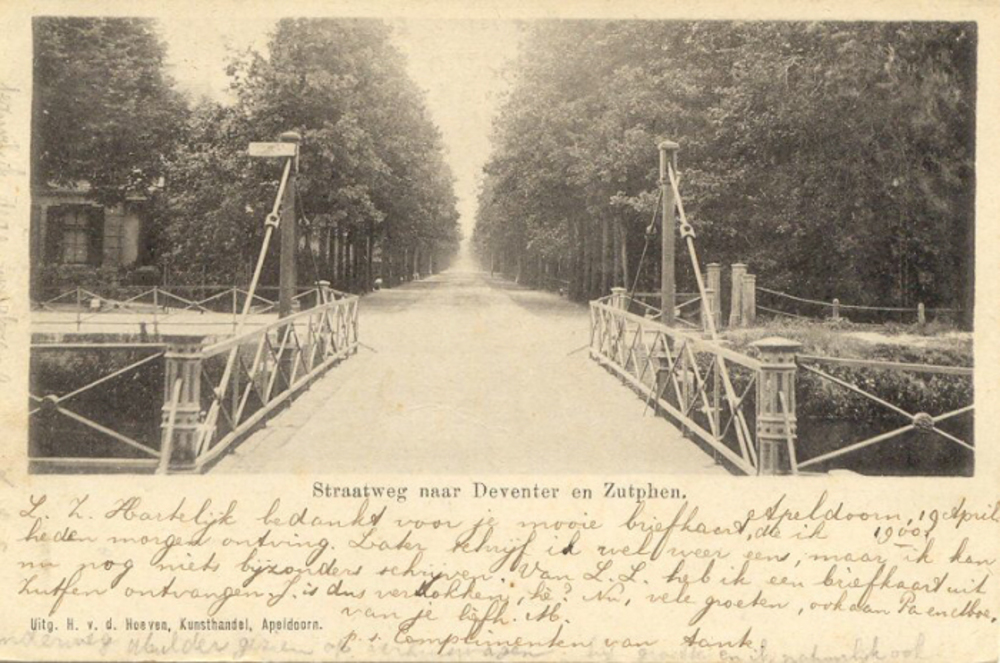 Straatweg naar Deventer en Zutphen.
Apeldoorn, 19 April
1900.
L. Z. Hartelijk bedankt voor je mooie briefkaart, die ik
heden morgen ontving. Later schrijf ik wel weer eens, maar ik kan
nu nog niets bijzonders schrijven. Van L. L. heb ik een briefkaart uit
Zutfen ontvangen. J. is dus vertrokken, hè? Nu, vele groeten, ook aan Pa en Moe,
van je liefh. M.
p.s. Complimenten van tank.
Uitg. H. v. d. Hoeven, Kunsthandel, Apeldoorn.